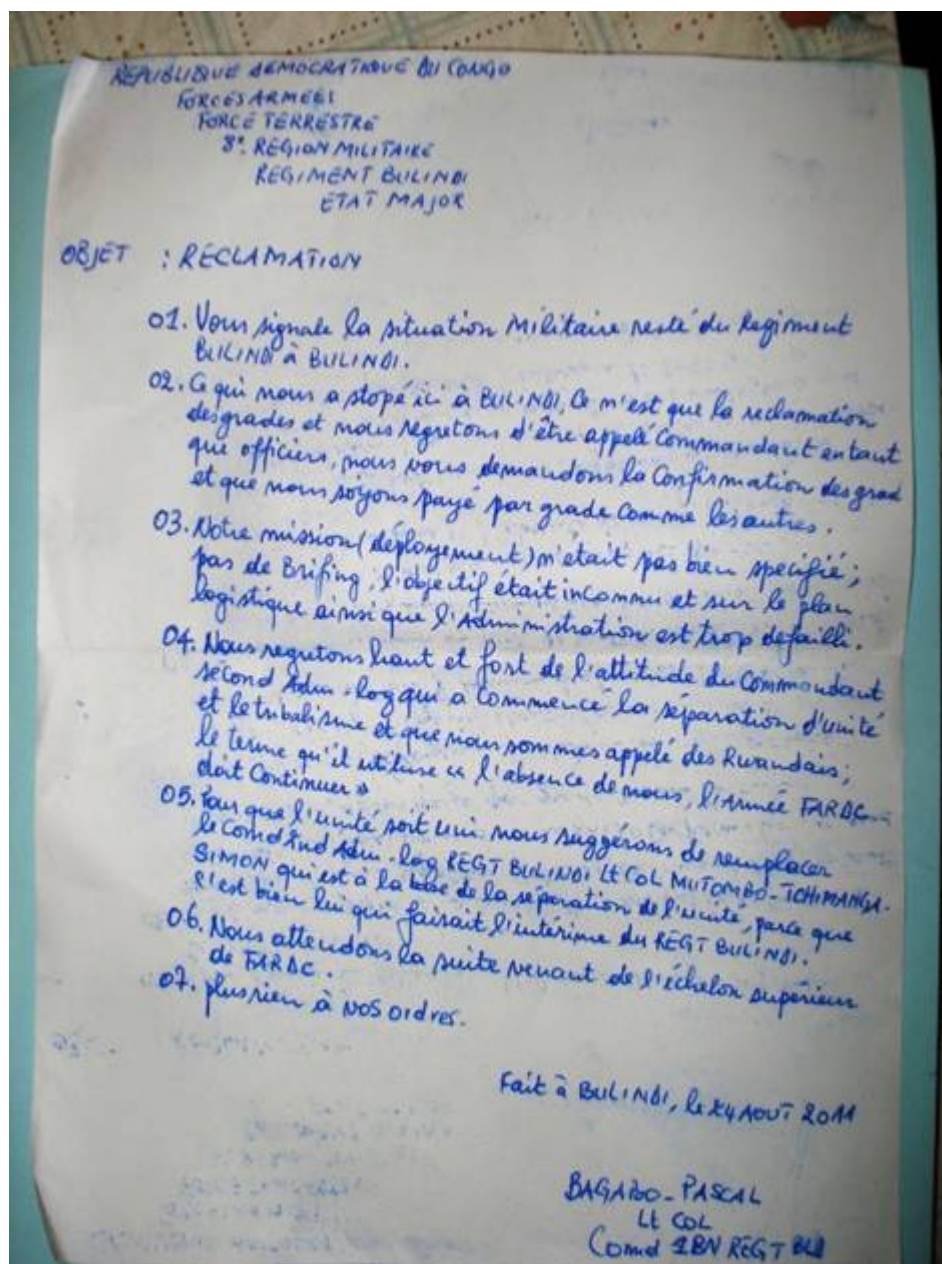 REPUBLIQUE DEMOCRATIQUE DU CONGO
FORCES ARMEES
FORCE TERRESTRE
8e. REGION MILITAIRE
REGIMENT BULINDI
ETAT MAJOR
OBJET : RECLAMATION
01. Vous signale la situation Militaire resté du Regiment
BULINDI à BULINDI.
02. Ce qui nous a stopé ici à BULINDI, Ce n'est que la reclamation
des grades et nous regretons d'être appelé Commandant entant
que officiers, nous vous demandons la Confirmation des grad
et que nous soyons payé par grade comme les autres.
03. Notre mission (déployement) n'était pas bien specifié;
pas de Brifing, l'objectif était inconnu et sur le plan
logistique ainsi que l'Administration est trop defailli.
04. Nous regretons haut et fort de l'attitude du Commandant
second Adm-log qui a commencé la séparation d'unité
et le tribalisme et que nous sommes appelé des Rwandais;
le terme qu'il utilise « l'absence de nous, l'Armée FARDC
doit Continuer »
05. Pour que l'unité soit uni nous suggérons de remplacer
le Comd 2nd Adm-log REGT BULINDI Lt Col MUTOMBO-TCHIMANGA-
SIMON qui est à la base de la séparation de l'unité, parce que
c'est bien lui qui faisait l'intérime du REGT BULINDI.
06. Nous attendons la suite venant de l'échelon supérieur
de FARDC.
07. plus rien à vos ordres.
Fait à BULINDI, le AOUT 2011
BAGABO-PASCAL
Lt COL
Comd 1BN REGT BUL